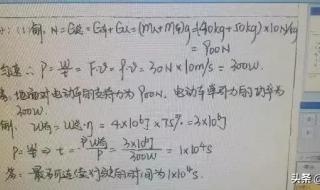 (1) 解: N=G总=G车+G人=(m人+m车)g=(40kg+50kg)×10N/kg
=900N
P=W/t=F·v=f·v=30N×10m/s=300W.
答:地面对电动车的支持力为900N, 电动车牵引力的功率为
300W.
W电·η=4×10⁶J×75%=3×10⁶J
P=W/t⇒t=W/P=3×10⁶J/300W=1×10⁴s
答: 最多可连续行驶的时间为1×10⁴s.
头条